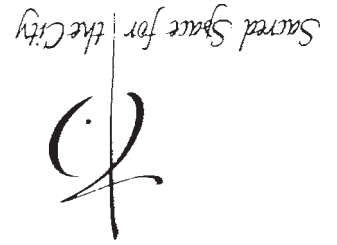 Sacred Space for the City